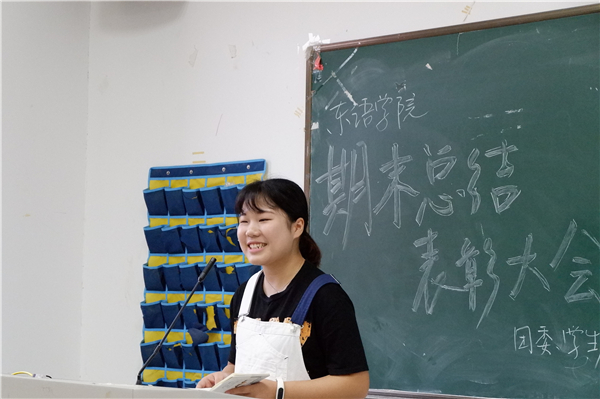 东语学院
期末总结
表彰大会
团委学生